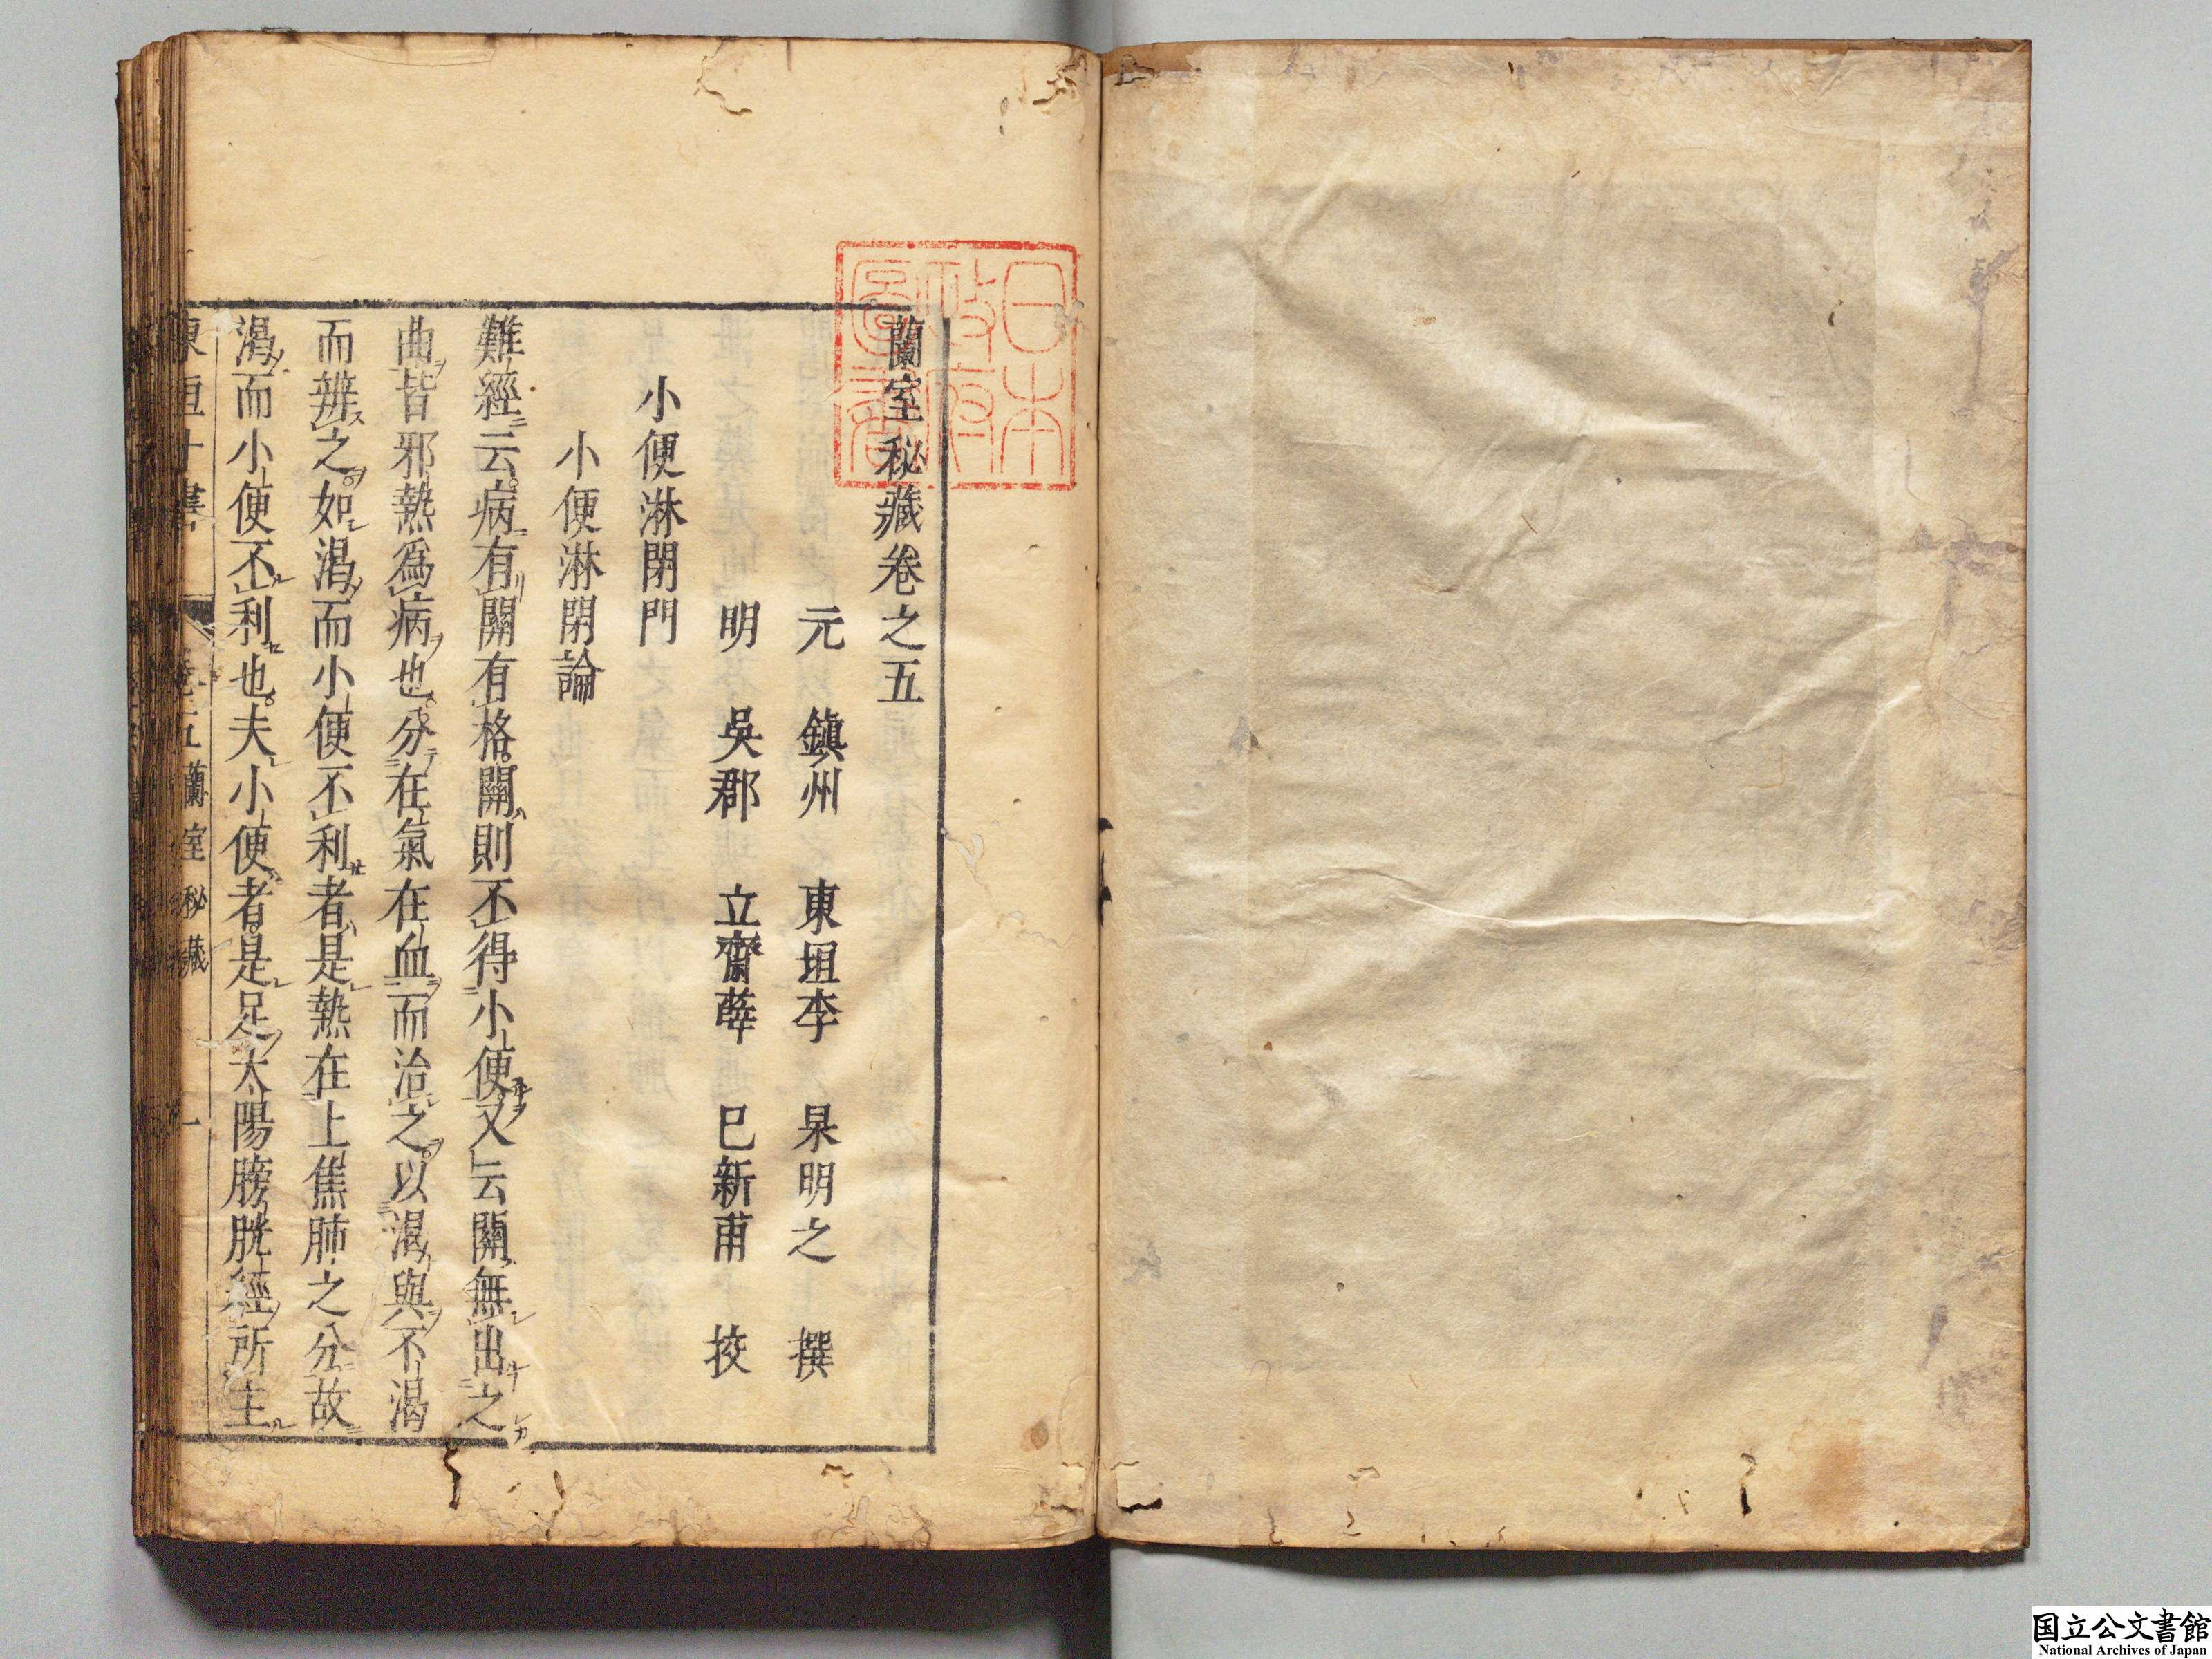 蘭室秘藏卷之五
元 鎮州 東垣李 杲明之 撰
明 吳郡 立齋薛 己新甫 挍
小便淋閉門
小便淋閉論
難經云病有關有格關則不得小便又云關無出之
曲皆邪熱爲病也分在氣在血而治之以渴與不渴
而辨之如渴而小便不利者是熱在上焦肺之分故
渴而小便不利也夫小便者是足太陽膀胱經所主
東垣十書 卷五蘭室秘藏 一
日本
政府
圖書
国立公文書館
National Archives of Japan